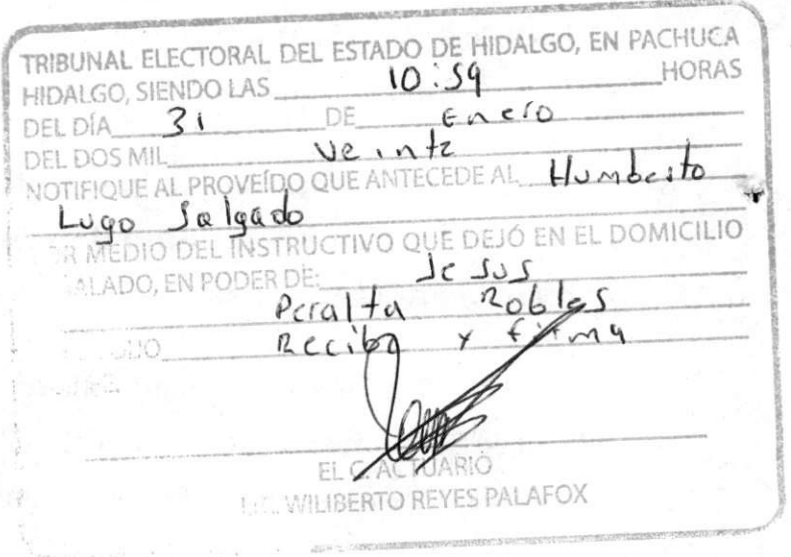 TRIBUNAL ELECTORAL DEL ESTADO DE HIDALGO, EN PACHUCA
HIDALGO, SIENDO LAS 10:59 HORAS
DEL DÍA 31 DE Enero
DEL DOS MIL Veinte
NOTIFIQUE AL PROVEÍDO QUE ANTECEDE AL Humberto
Lugo Salgado
R MEDIO DEL INSTRUCTIVO QUE DEJÓ EN EL DOMICILIO
ALADO, EN PODER DE: Jesus
Peralta Robles
Recibo y firma
EL C. ACTUARIO
WILIBERTO REYES PALAFOX